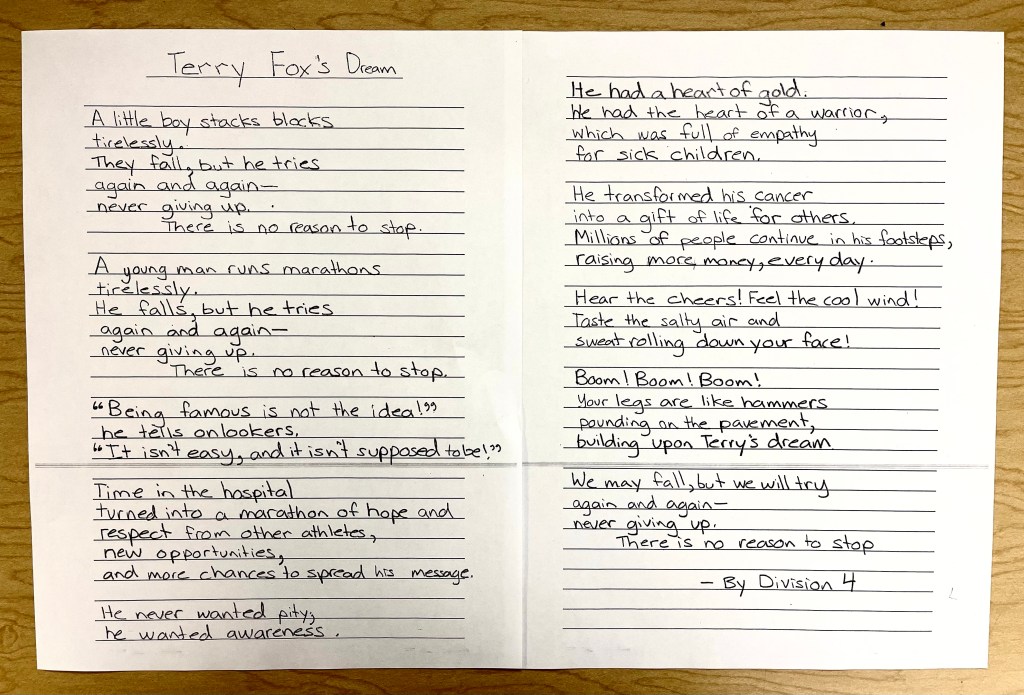 Terry Fox's Dream
A little boy stacks blocks
tirelessly.
They fall, but he tries
again and again—
never giving up.
There is no reason to stop.
A young man runs marathons
tirelessly.
He falls, but he tries
again and again—
never giving up.
There is no reason to stop.
"Being famous is not the idea!"
he tells onlookers,
"It isn't easy, and it isn't supposed to be!"
Time in the hospital
turned into a marathon of hope and
respect from other athletes,
new opportunities,
and more chances to spread his message.
He never wanted pity;
he wanted awareness.
He had a heart of gold.
He had the heart of a warrior,
which was full of empathy
for sick children.
He transformed his cancer
into a gift of life for others.
Millions of people continue in his footsteps,
raising more money, every day.
Hear the cheers! Feel the cool wind!
Taste the salty air and
sweat rolling down your face!
Boom! Boom! Boom!
Your legs are like hammers
pounding on the pavement,
building upon Terry's dream.
We may fall, but we will try
again and again—
never giving up.
There is no reason to stop
– By Division 4